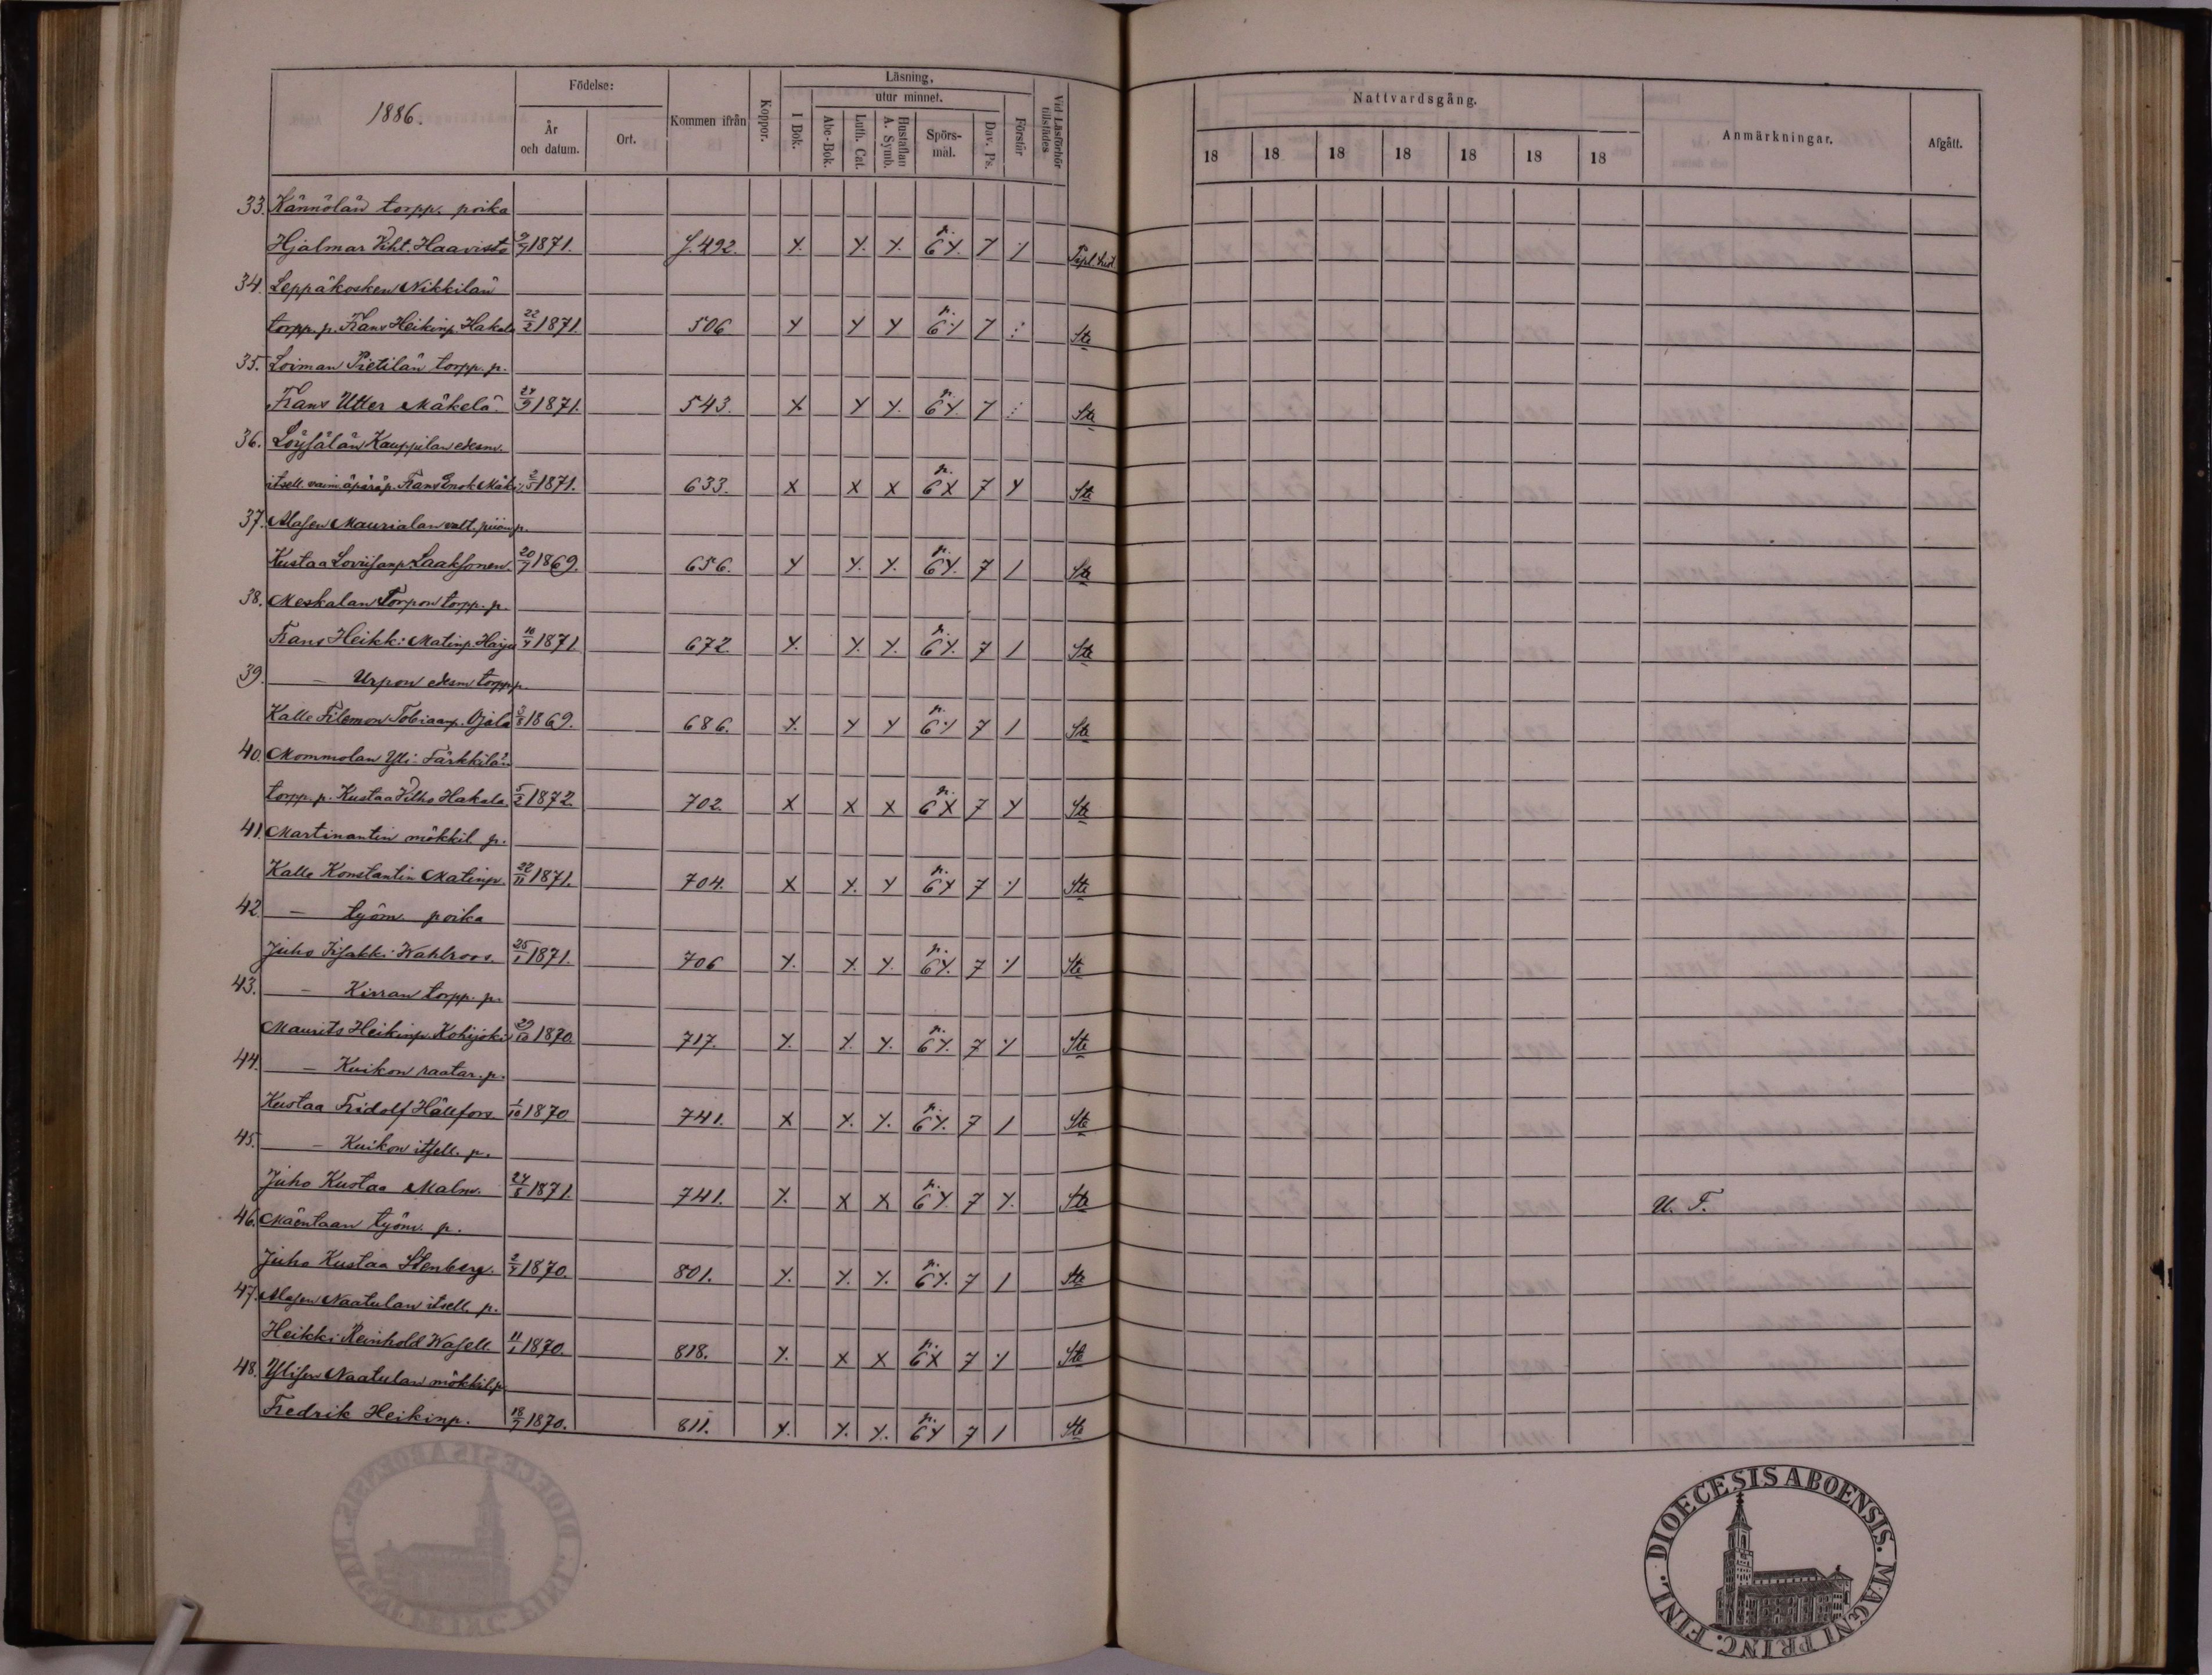 1886.
Födelse:
År och datum.
Ort.
Kommen ifrån
Koppor.
Läsning,
I Bok.
utur minnet.
Abc-Bok.
Luth. Cat.
Hustaflan A. Symb.
Spörs-mål.
Dav. Ps.
Förstår
Vid Läsförhör tillstädes
Nattvardsgång.
18 18 18 18 18 18 18
Anmärkningar.
Afgått.
33. Kännölän torpp. poika
Hjalmar Viht. Haavisto 9/9 1871. S. 492. 7
34. Leppäkosken Nikkilän
torpp. p. Frans Heikinp. Hakala 22/2 1871. 506 7 Ste
35. Loiman Pietilän torpp. p.
Frans Utter Mäkelä 24/9 1871. 543. 7 Ste
36. Löysälän Kauppilan edesm.
itsell. vaim. äpärä p. Frans Enok Mäki 2/5 1871. 633. X X X 6 X 7 Ste
37. Alasen Maurialan valt. piian p.
Kustaa Loviisanp. Laaksonen 20/7 1869. 656. 7 Ste
38. Meskalan Torpon torpp. p.
Frans Heikki Matinp. Harju 16/9 1871 672. 7 Ste
39. — Urpon edesm torpp p.
Kalle Filemon Tobiaanp. Ojala 3/8 1869. 686. 7 Ste
40. Mommolan Yli-Tärkkilän
torpp. p. Kustaa Vilho Hakala 5/2 1872. 702. X X X 6 X 7 Ste
41. Martinantin mökkil. p.
Kalle Konstantin Matinp. 22/11 1871. 704. 7 Ste
42. — työm. poika
Juho Iisakki Wahlroos. 25/1 1871. 706 7 Ste
43. — Kirran torpp. p.
Maurits Heikinp. Kohijoki 29/10 1870. 717. 7 Ste
44. — Kuikon raatar. p.
Kustaa Fridolf Hällfors 1/10 1870 741. 7 Ste
45. — Kuikon itsell. p.
Juho Kustaa Malm. 24/8 1871. 741. 7 Ste U. T.
46. Mäentaan työm. p.
Juho Kustaa Stenberg. 2/4 1870. 801. 7 Ste
47. Alasen Naatulan itsell. p.
Heikki Reinhold Wasell. 11/1 1870. 818. X X 6 X 7 Ste
48. Ylisen Naatulan mökkil. p.
Fredrik Heikinp. 18/7 1870. 811. 7 Ste
DIOECESIS ABOENSIS. MAGNI PRINC. FINL.